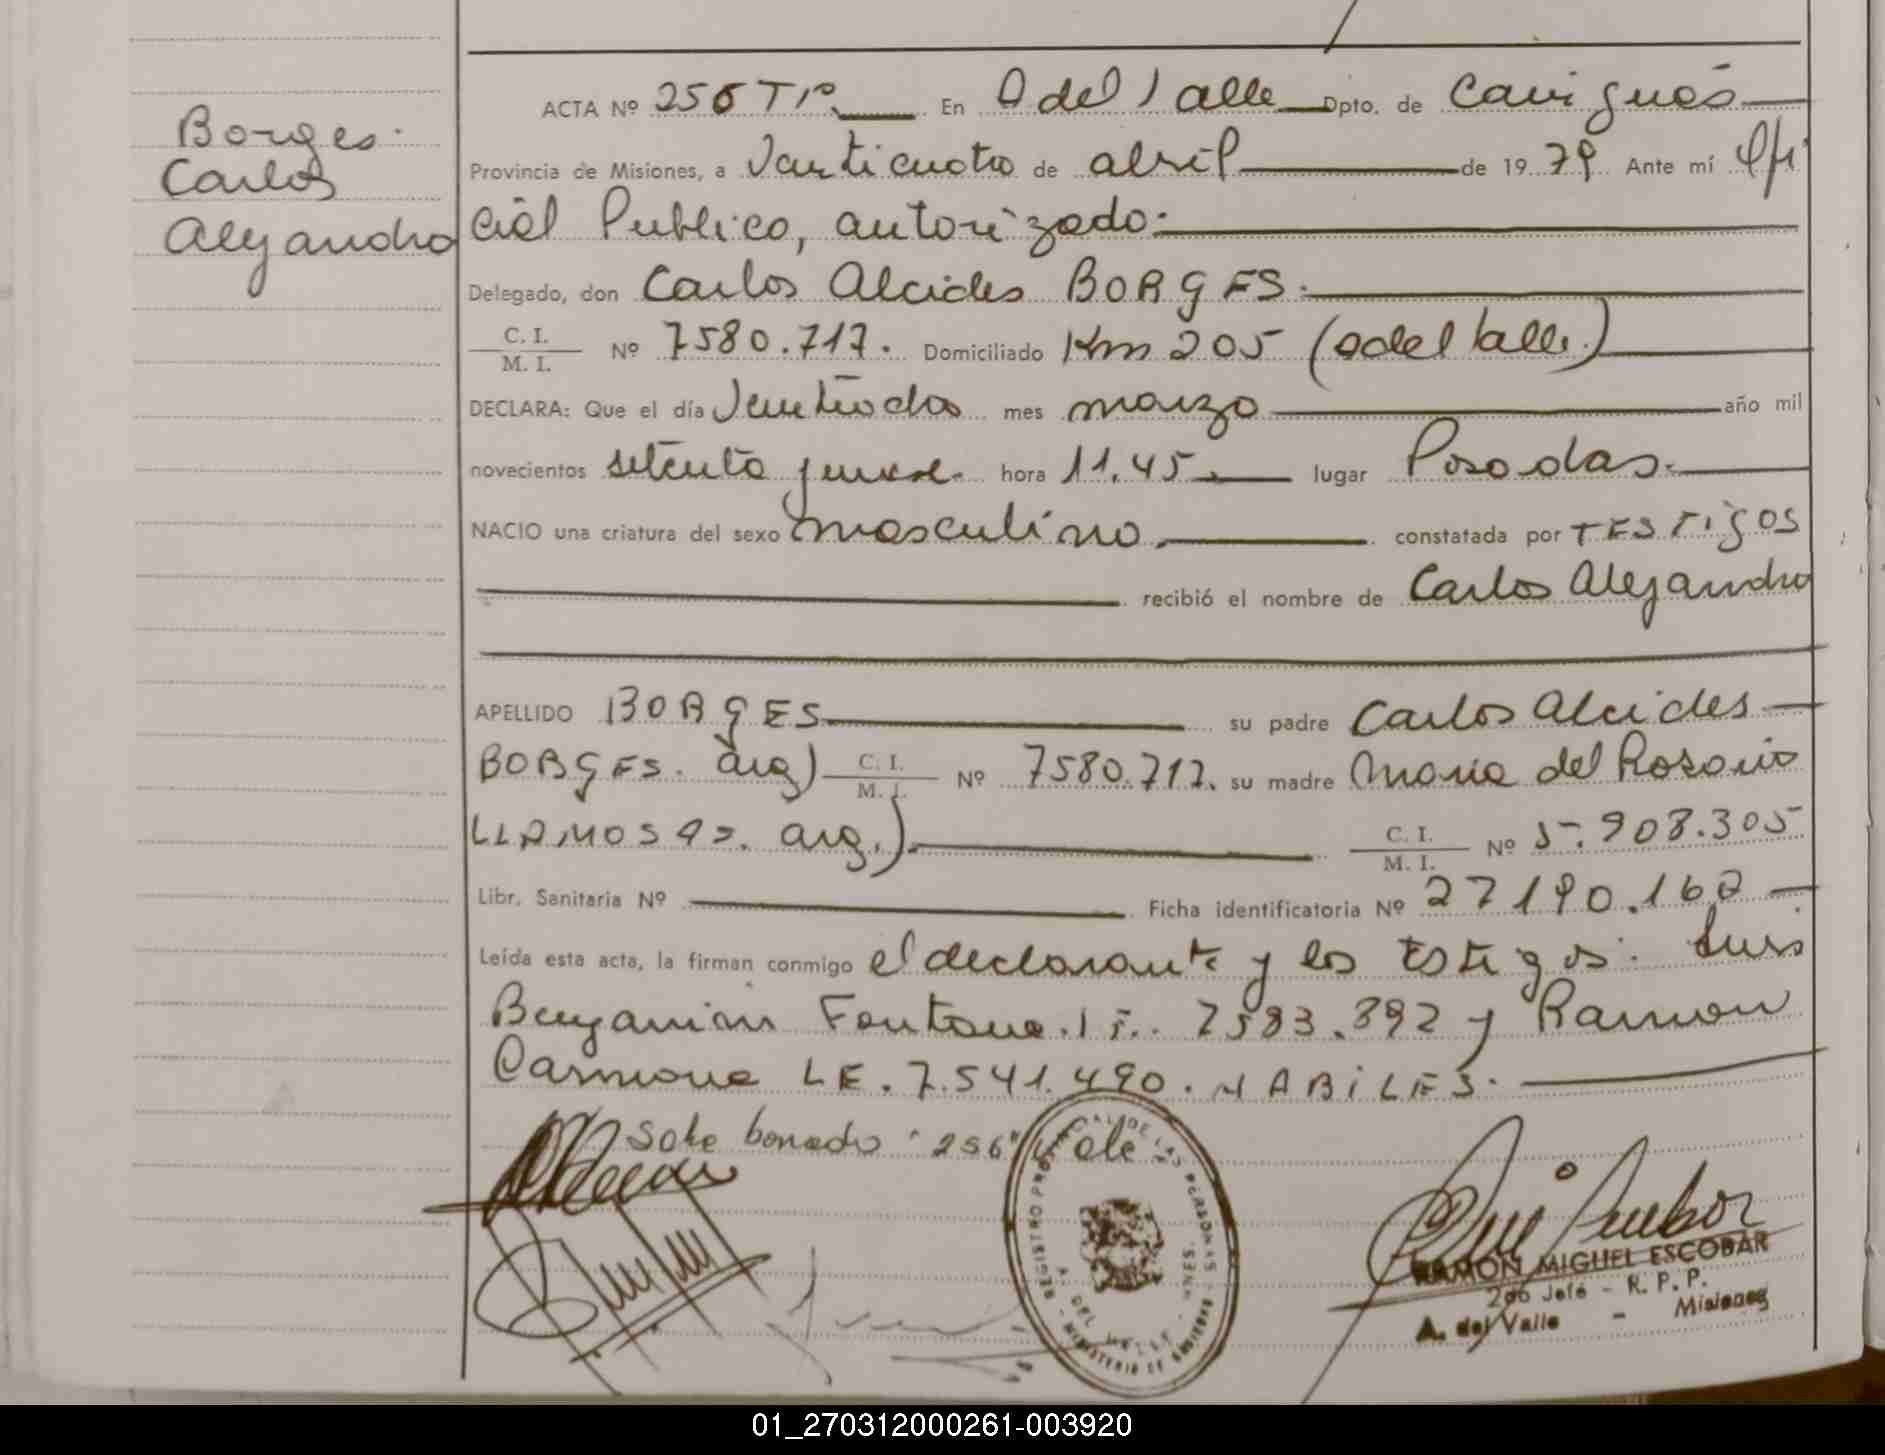 Borges.
Carlos
Alejandro
ACTA Nº 256 Tº En A del Valle Dpto. de Cainguás
Provincia de Misiones, a Veinticuatro de abril de 1979 Ante mí Ofi
cial Publico, autorizado.
Delegado, don Carlos Alcides BORGES.
C. I.
M. I.
Nº 7580.717. Domiciliado Km 205 (A del Valle.)
DECLARA: Que el día Veintidos mes marzo año mil
novecientos setenta y nueve. hora 11.45 lugar Posadas.
NACIO una criatura del sexo masculino. constatada por TESTIGOS
recibió el nombre de Carlos Alejandro
APELLIDO BORGES su padre Carlos Alcides
BORGES. arg) C. I. M. I. Nº 7580.717. su madre Maria del Rosario
LLAMOSAS. arg.) C. I. M. I. Nº 5.908.305
Libr. Sanitaria Nº Ficha identificatoria Nº 27190.162
Leída esta acta, la firman conmigo el declarante y los testigos. Luis
Benjamin Fontana. 7583.392 y Ramon
Carmona LE. 7.541.490. HABILES.
Sobre borrado "256" Vale
REGISTRO PROVINCIAL DE LAS PERSONAS
A. DEL VALLE - MNES.
MINISTERIO DE GOBIERNO
RAMON MIGUEL ESCOBAR
2do Jefe - R. P. P.
A. del Valle - Misiones
01_270312000261-003920